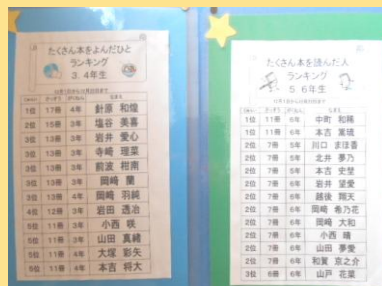 たくさん本をよんだひと
ランキング
3. 4年生
1位 17冊 4年 針原 和煌
2位 15冊 3年 塩谷 美喜
3位 13冊 3年 岩井 愛心
3位 13冊 3年 寺崎 理菜
3位 13冊 3年 前波 柑南
3位 13冊 3年 岡崎 蘭
4位 12冊 3年 岩田 透冶
5位 11冊 3年 小西 咲
5位 11冊 山田 真緒
5位 11冊 大塚 彩矢
5位 11冊 本吉 将大
たくさん本を読んだ人
ランキング
5 6年生
1位 11冊 6年 中町 和稀
1位 11冊 6年 本吉
2位 7冊 5年 川口 まほ
2位 7冊 5年 北井 夢乃
2位 7冊 5年 本吉 史埜
2位 7冊 6年 岩井 望愛
2位 7冊 6年 越後 翔天
2位 7冊 6年 岡崎 希乃花
2位 7冊 6年 岡崎 大和
2位 7冊 6年 小西 晴
2位 7冊 6年 山田 夢愛
2位 7冊 6年 和賀 京之介
3位 6冊 6年 山戸 花菜